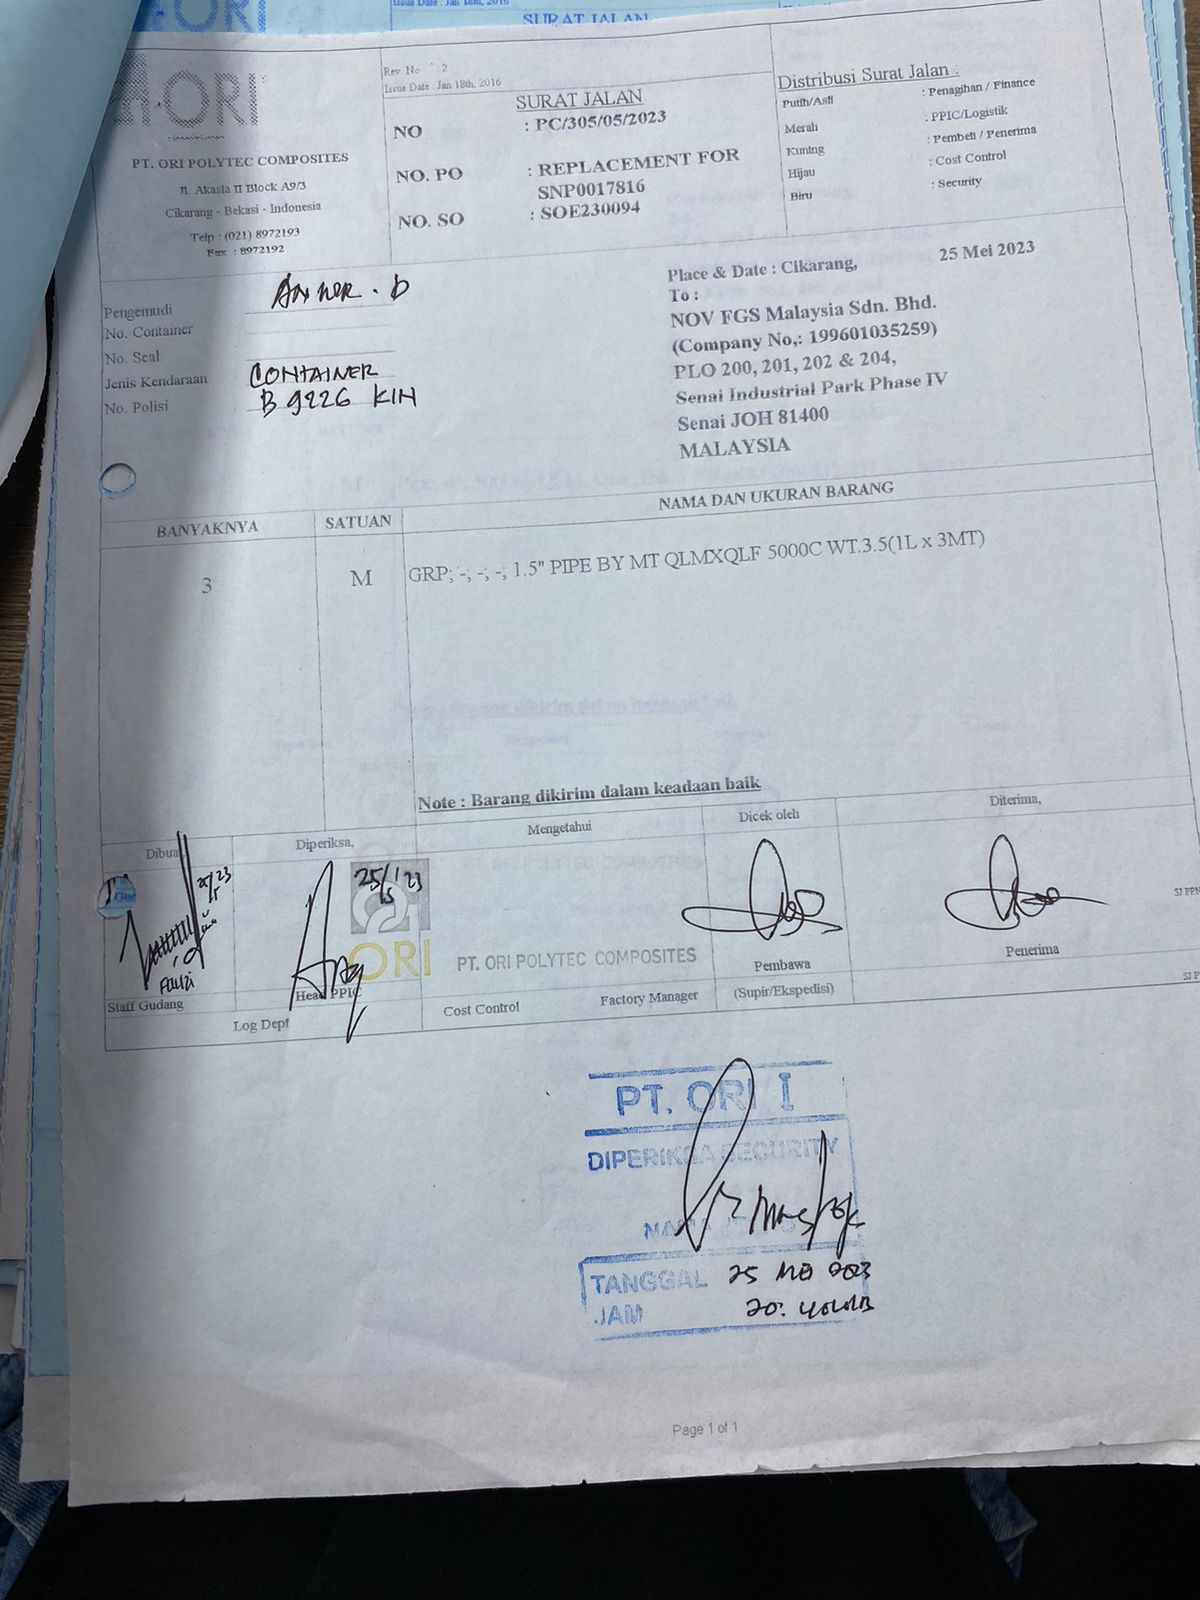 ORI
Issue Date : Jan 18th, 2016
SURAT JALAN
ORI
PT. ORI POLYTEC COMPOSITES
Jl. Akasia II Block A9/3
Cikarang - Bekasi - Indonesia
Telp : (021) 8972193
Fax : 8972192
Rev No : 2
Issue Date : Jan 18th, 2016
SURAT JALAN
NO : PC/305/05/2023
NO. PO : REPLACEMENT FOR
SNP0017816
NO. SO : SOE230094
Distribusi Surat Jalan :
Putih/Asli : Penagihan / Finance
Merah : PPIC/Logistik
Kuning : Pembeli / Penerima
Hijau : Cost Control
Biru : Security
Pengemudi
No. Container
No. Seal
Jenis Kendaraan CONTAINER
No. Polisi B 9226 KIH
Place & Date : Cikarang, 25 Mei 2023
To :
NOV FGS Malaysia Sdn. Bhd.
(Company No,: 199601035259)
PLO 200, 201, 202 & 204,
Senai Industrial Park Phase IV
Senai JOH 81400
MALAYSIA
BANYAKNYA SATUAN NAMA DAN UKURAN BARANG
3 M GRP; -; -; -; 1.5" PIPE BY MT QLMXQLF 5000C WT.3.5(1L x 3MT)
Note : Barang dikirim dalam keadaan baik
Dibuat Diperiksa, Mengetahui Dicek oleh Diterima,
25/5 23
25/5 23
Fauzi
ORI
PT. ORI POLYTEC COMPOSITES
Pembawa
Penerima
Staff Gudang Head PPIC Cost Control Factory Manager (Supir/Ekspedisi)
Log Dept
SJ PPN
SJ P
PT. ORI I
DIPERIKSA SECURITY
NAMA
TANGGAL 25 MEI 2023
JAM 20.
Page 1 of 1